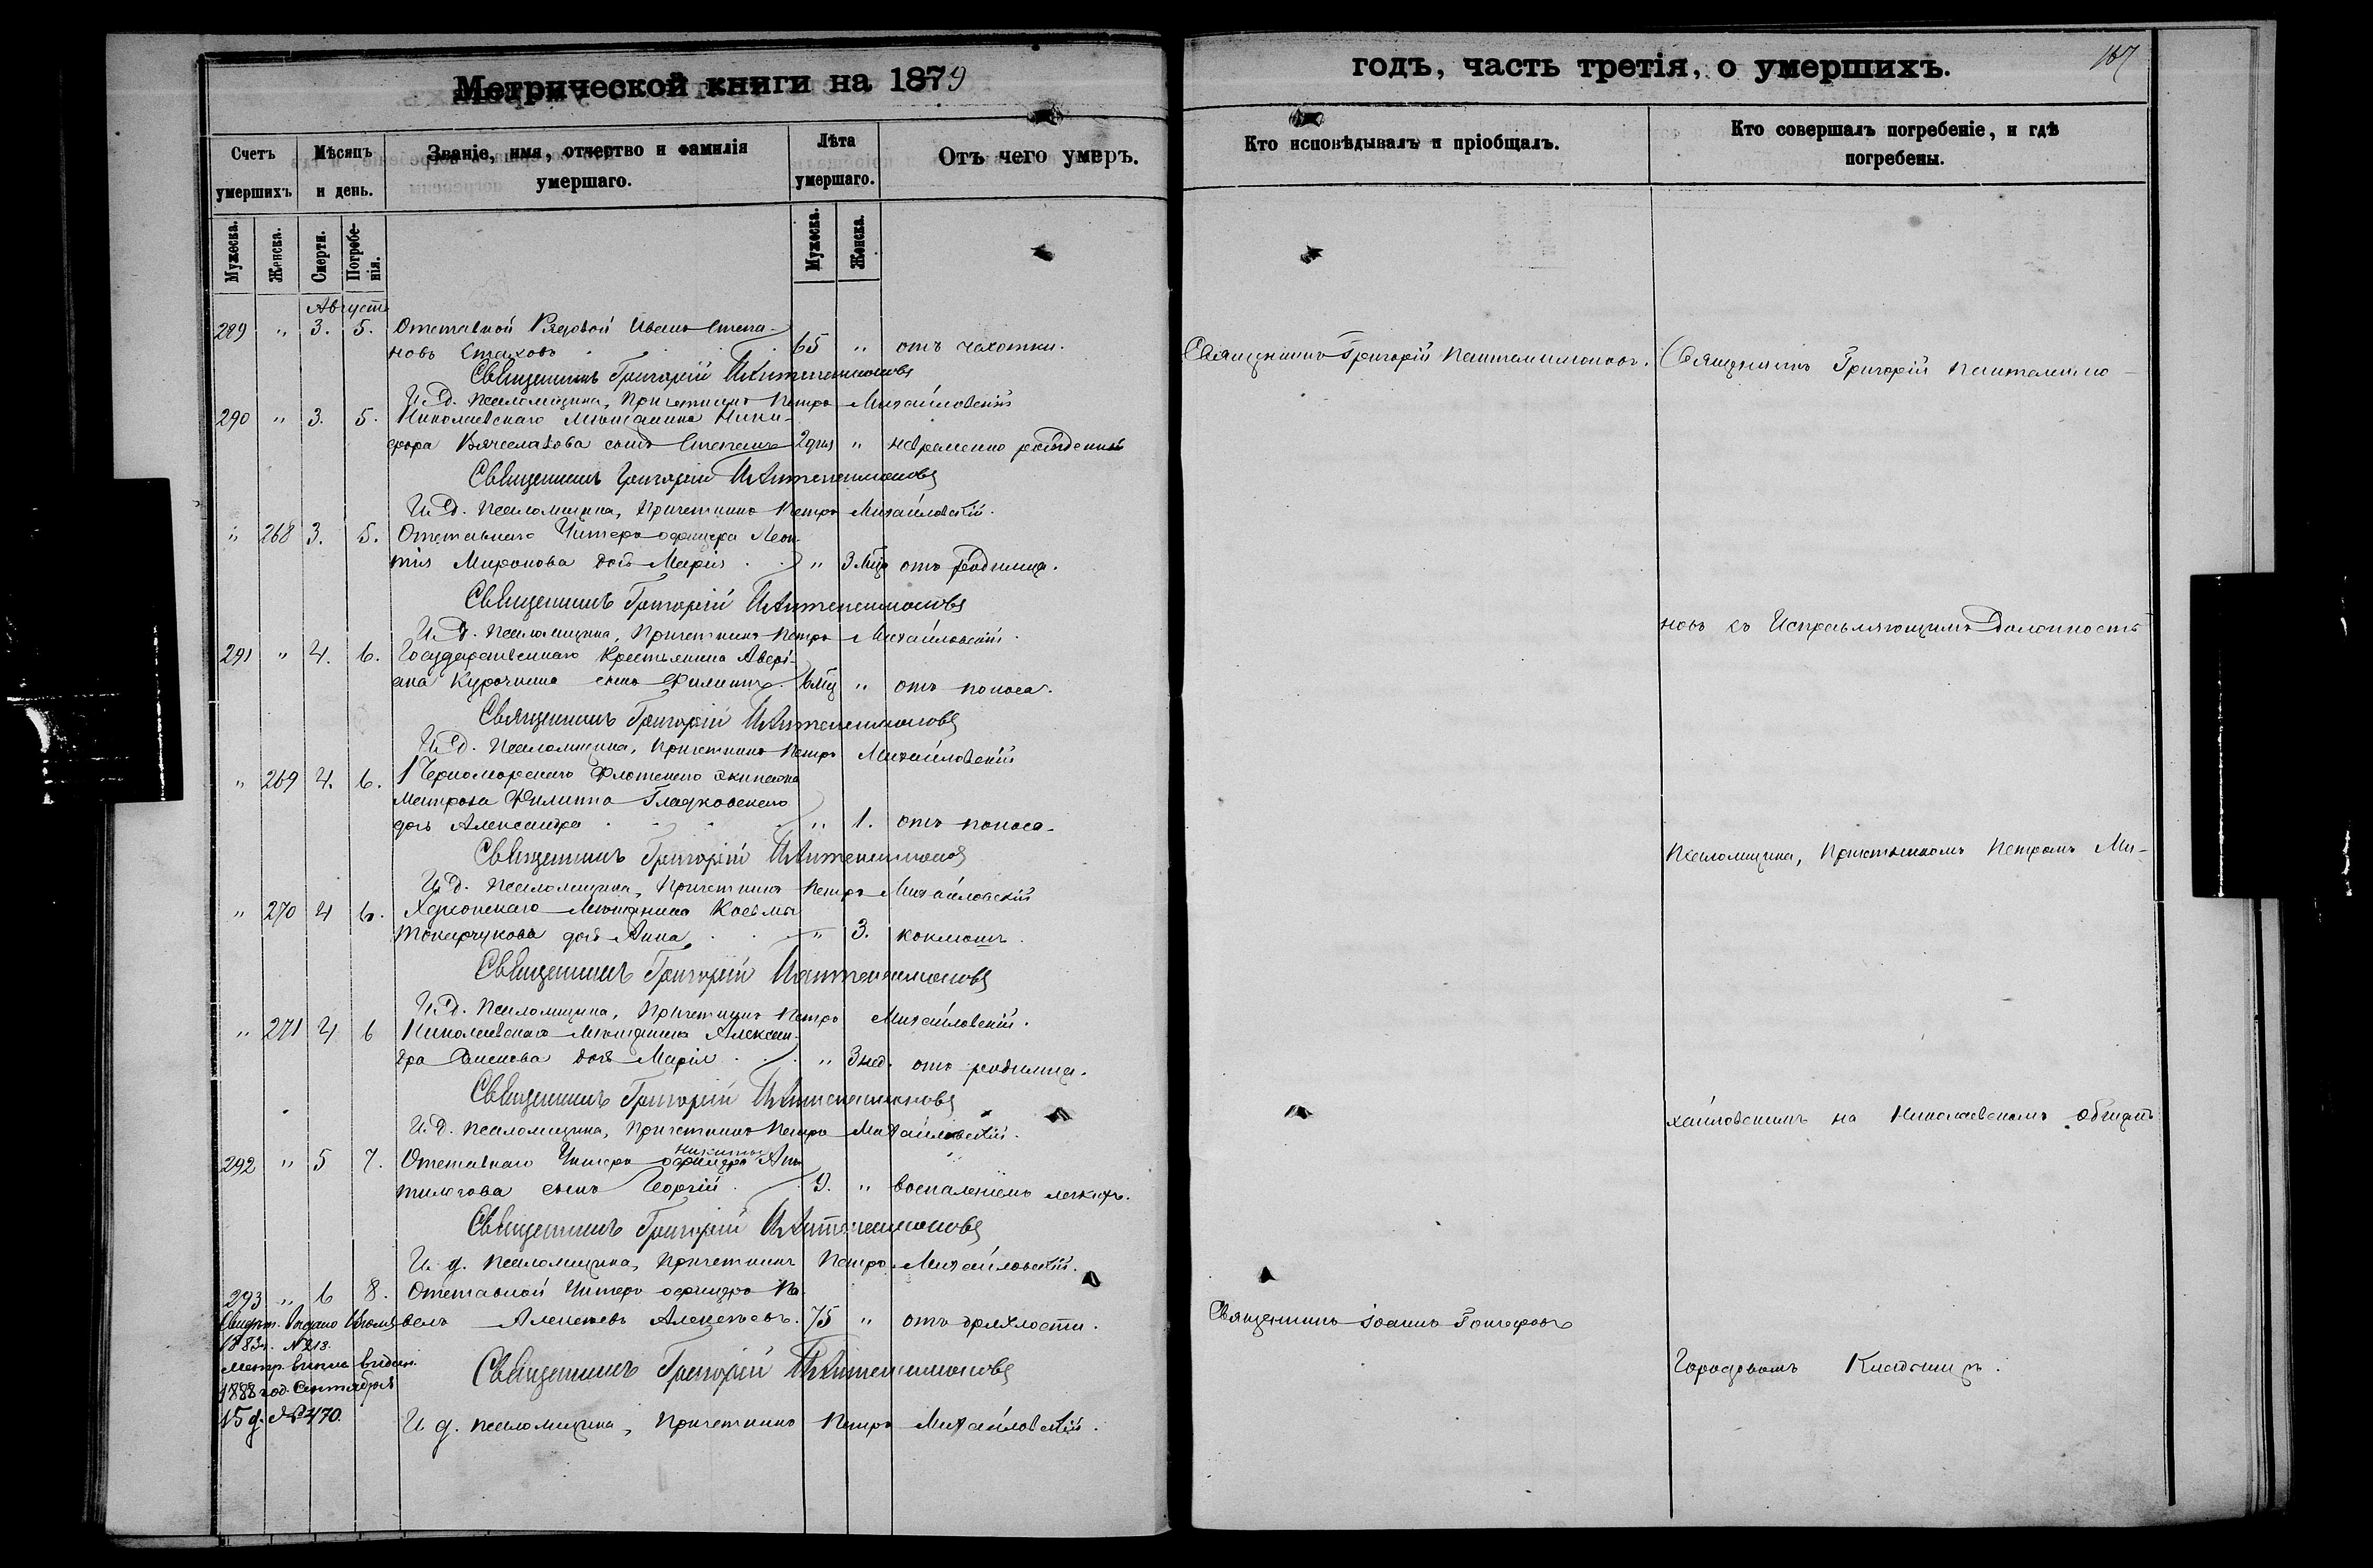 Метрической книги на 1879
годъ, часть третія, о умершихъ.
167
Счетъ умершихъ
Мѣсяцъ и день.
Званіе, имя, отчество и фамилія умершаго.
Лѣта умершаго.
Отъ чего умеръ.
Кто исповѣдывалъ и пріобщалъ.
Кто совершалъ погребеніе, и гдѣ погребены.
Мужеска.
Женска.
Смерти.
Погребенія.
Мужеска.
Женска.
Августъ
289 " 3. 5. Отставной Рядовой Иванъ Степа-
новъ Стаховъ 65 " отъ чахотки.
Священникъ Григорій Пантелеимоновъ. Священникъ Григорій Пантелеимо-
Священникъ Григорій Пантелеимоновъ
И. д. Псаломщика, Причетникъ Петръ Михайловскій
290 " 3. 5. Николаевскаго Мѣщанина Ники-
фора Вячеславова сынъ Степанъ 2 дня " невременно рожденный
Священникъ Григорій Пантелеимоновъ
И. д. Псаломщика, Причетникъ Петръ Михайловскій.
" 268 3. 5. Отставнаго Унтеръ офицера Леон-
тія Миронова дочь Марія " 3 мѣс отъ родимца.
Священникъ Григорій Пантелеимоновъ
И. д. Псаломщика, Причетникъ Петръ Михайловскій.
новъ съ Исправляющимъ Должность
291 " 4. 6. Государственнаго Крестьянина Авері-
ана Курочкина сынъ Филиппъ. 6 мѣс " отъ поноса.
Священникъ Григорій Пантелеимоновъ
И. д. Псаломщика, Причетникъ Петръ Михайловскій
" 269 4. 6. 1 Черноморскаго Флотскаго экипажа
Матроса Филиппа Гладковскаго
дочь Александра " 1. отъ поноса.
Священникъ Григорій Пантелеимоновъ
Псаломщика, Причетникомъ Петромъ Ми-
И. д. Псаломщика, Причетникъ Петръ Михайловскій
" 270 4 6. Херсонскаго Мѣщанина Косьмы
Токарчукова дочь Анна " 3. коклюшъ.
Священникъ Григорій Пантелеимоновъ
И. д. Псаломщика, Причетникъ Петръ Михайловскій.
" 271 4 6 Николаевскаго Мѣщанина Алексан-
дра дочь Марія " 3 нед. отъ родимца.
Священникъ Григорій Пантелеимоновъ
И. д. Псаломщика, Причетникъ Петръ Михайловскій.
хайловскимъ на Николаевскомъ общемъ
Никиты
292 " 5 7. Отставнаго Унтеръ офицера Ан-
сынъ Георгій 9. " воспаленіемъ легкихъ.
Священникъ Григорій Пантелеимоновъ
И. д. Псаломщика, Причетникъ Петръ Михайловскій.
293 " 6 8. Отставной Унтеръ офицеръ Па-
велъ Алексѣевъ Алексѣевъ. 75 " отъ дряхлости.
Священникъ Іоаннъ
Свидѣт. выдано Іюля
1883 г. № 218.
Метр. выпис выдан.
1888 год. Сентября
15 д. № 470.
Священникъ Григорій Пантелеимоновъ
Городскомъ Кладбищѣ.
И. д. Псаломщика, Причетникъ Петръ Михайловскій.